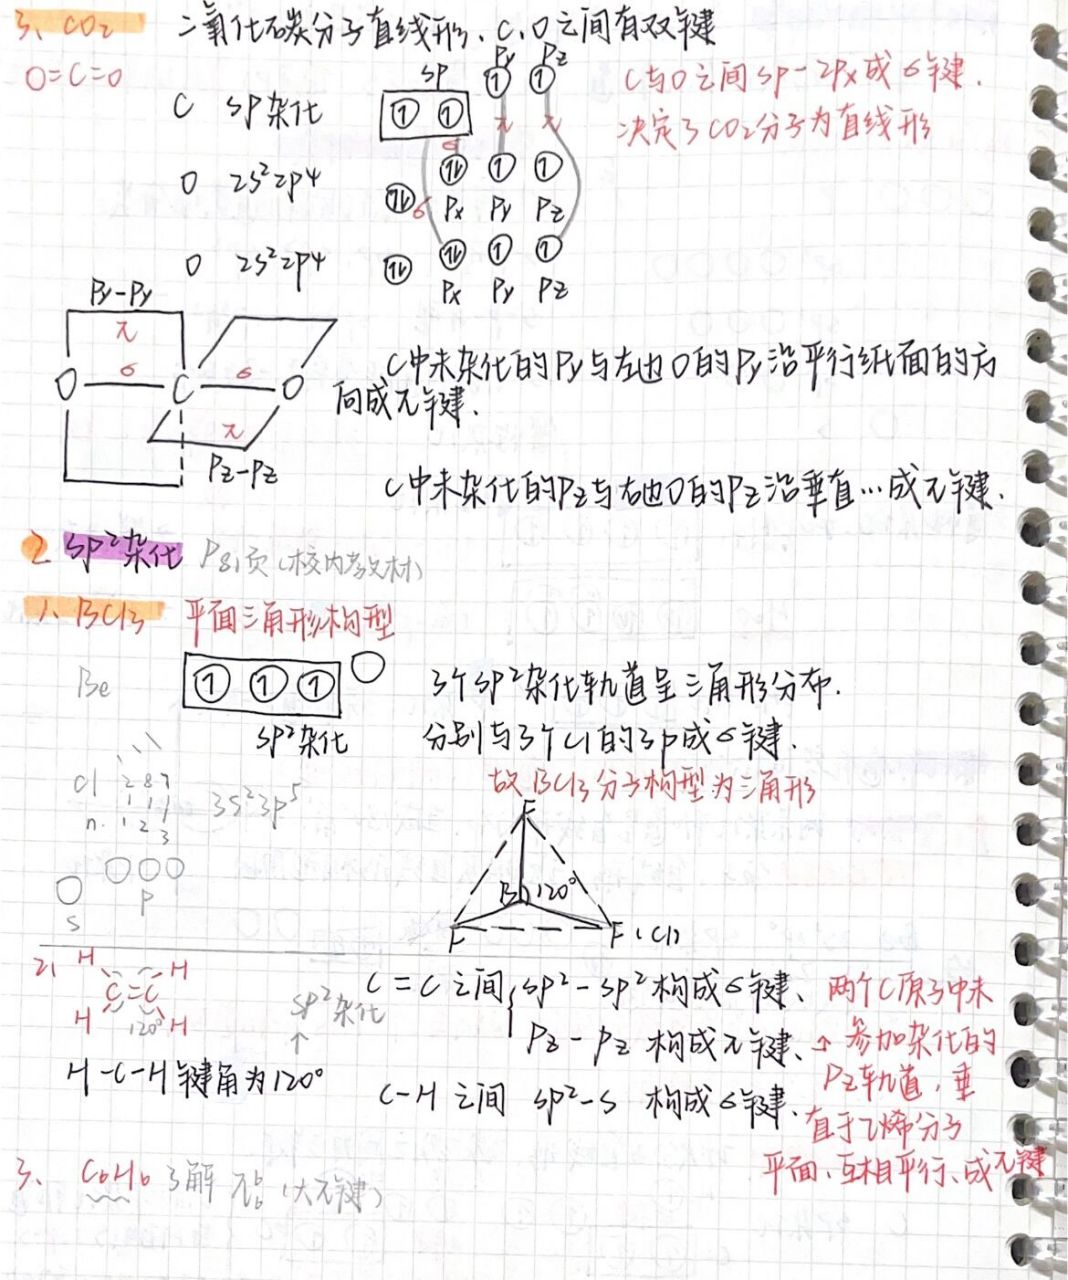 3、CO2 二氧化碳分子直线形、C,O之间有双键
O=C=O
C SP杂化
SP Py Pz
π π
σ
C与O之间SP-2Px成σ键、
决定了CO2分子为直线形
O 2s²2p4
σ Px Py Pz
O 2s²2p4
Px Py Pz
Py-Py
π
σ σ
O C O
π
Pz-Pz
C中未杂化的Py与左边O的Py沿平行纸面的方
向成π键、
C中未杂化的Pz与右边O的Pz沿垂直…成π键、
2 SP²杂化 P81页(校内教材)
1、BCl3 平面三角形构型
Be
SP²杂化
3个SP²杂化轨道呈三角形分布.
分别与3个Cl的3p成σ键、
故BCl3分子构型为三角形
Cl 2 8 7
n. 1 2 3
3s²3p⁵
S P
F
B 120°
F F(Cl)
2、
H H
C=C
H 120° H
SP²杂化
↑
H-C-H键角为120°
C=C之间{SP²-SP²构成σ键、
Pz-Pz构成π键、
C-H之间 SP²-S 构成σ键、
两个C原子中未
→参加杂化的
Pz轨道,垂
直于乙烯分子
平面、互相平行、成π键
3、C6H6 了解 π⁶₆(大π键)